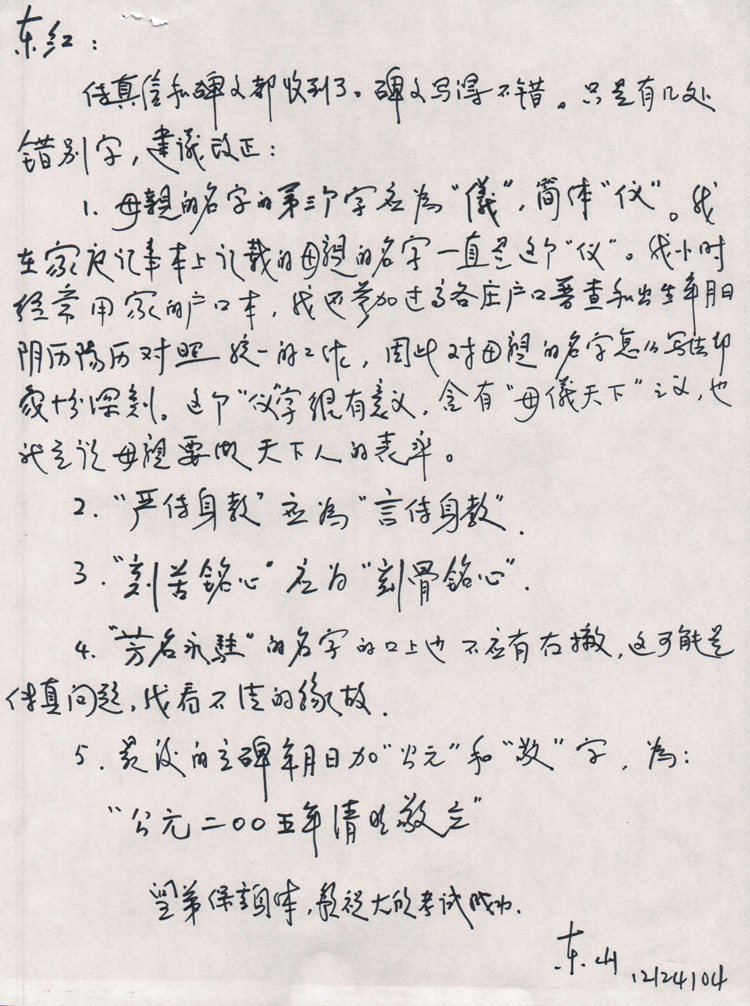 东红：
传真信和碑文都收到了。碑文写得不错。只是有几处
错别字，建议改正：
1. 母親的名字的第三个字应为“儀”，简体“仪”。我
在家庭记事本上记载的母親的名字一直是这个“仪”。我小时
经常用家的户口本，我也参加过高各庄户口普查和出生年月日
阴历陽历对照统一的工作，因此对母親的名字怎么写法印
象十分深刻。这个“仪”字很有意义，含有“母儀天下”之义，也
就是说母親要做天下人的表率。
2. “严传身教”应为“言传身教”.
3. “刻苦铭心”应为“刻骨铭心”.
4. “芳名永駐”的名字的口上也不应有右撇，这可能是
传真问题，我看不清的缘故.
5. 最後的立碑年月日加“公元”和“敬”字，为：
“公元二〇〇五年清明敬立”
望弟保重身体，敬祝大欣考试成功.
东山 12/24/04